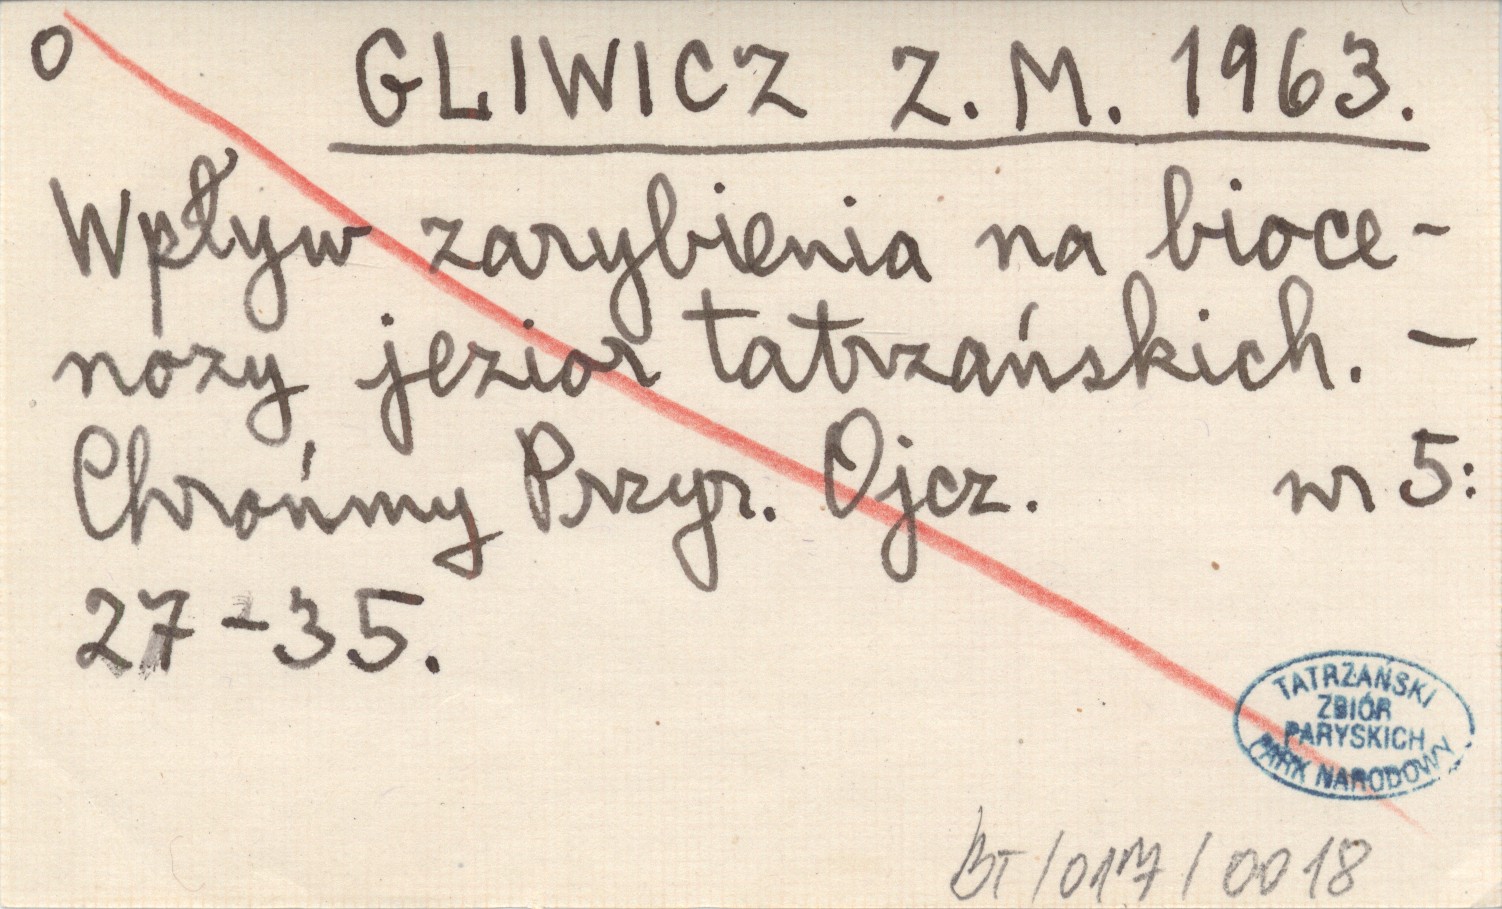 O
GLIWICZ Z. M. 1963.
Wpływ zarybienia na bioce-
nozy jezior tatrzańskich. –
Chrońmy Przyr. Ojcz. nr 5:
27-35.
TATRZAŃSKI
ZBIÓR
PARYSKICH
PARK NARODOWY
BT/017/0018